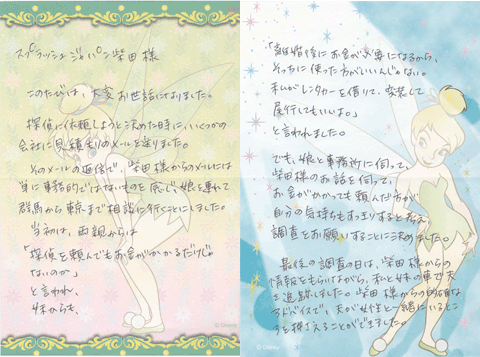 スプラッシュジャパン柴田様
このたびは、大変お世話になりました。
探偵に依頼しようと決めた時に、いくつかの
会社に見積もりのメールを送りました。
そのメールの返信で、柴田様からのメールには
単に事務的ではないものを感じ、娘を連れて
群馬から東京まで相談に行くことにしました。
当初は、両親からは
「探偵を頼んでもお金がかかるだけじゃ
ないのか」
と言われ、
妹からも、
© Disney
「離婚後にお金が必要になるから、
そっちに使った方がいいんじゃない。
私がレンタカーを借りて、変装して
尾行してもいいよ。」
と言われました。
でも、娘と事務所に伺って、
柴田様のお話を伺って、
お金がかかっても頼んだ方が
自分の気持ちもすっきりすると考え、
調査をお願いすることに決めました。
最後の調査の日は、柴田様からの
情報をもらいながら、私と妹の車で夫
を追跡しました。柴田様からの的確な
アドバイスで、夫が女性と一緒にいるとこ
ろを押さえることができました。
© Disney